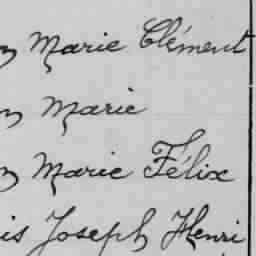 n Marie Clément
n Marie
n Marie Félix
is Joseph Henri